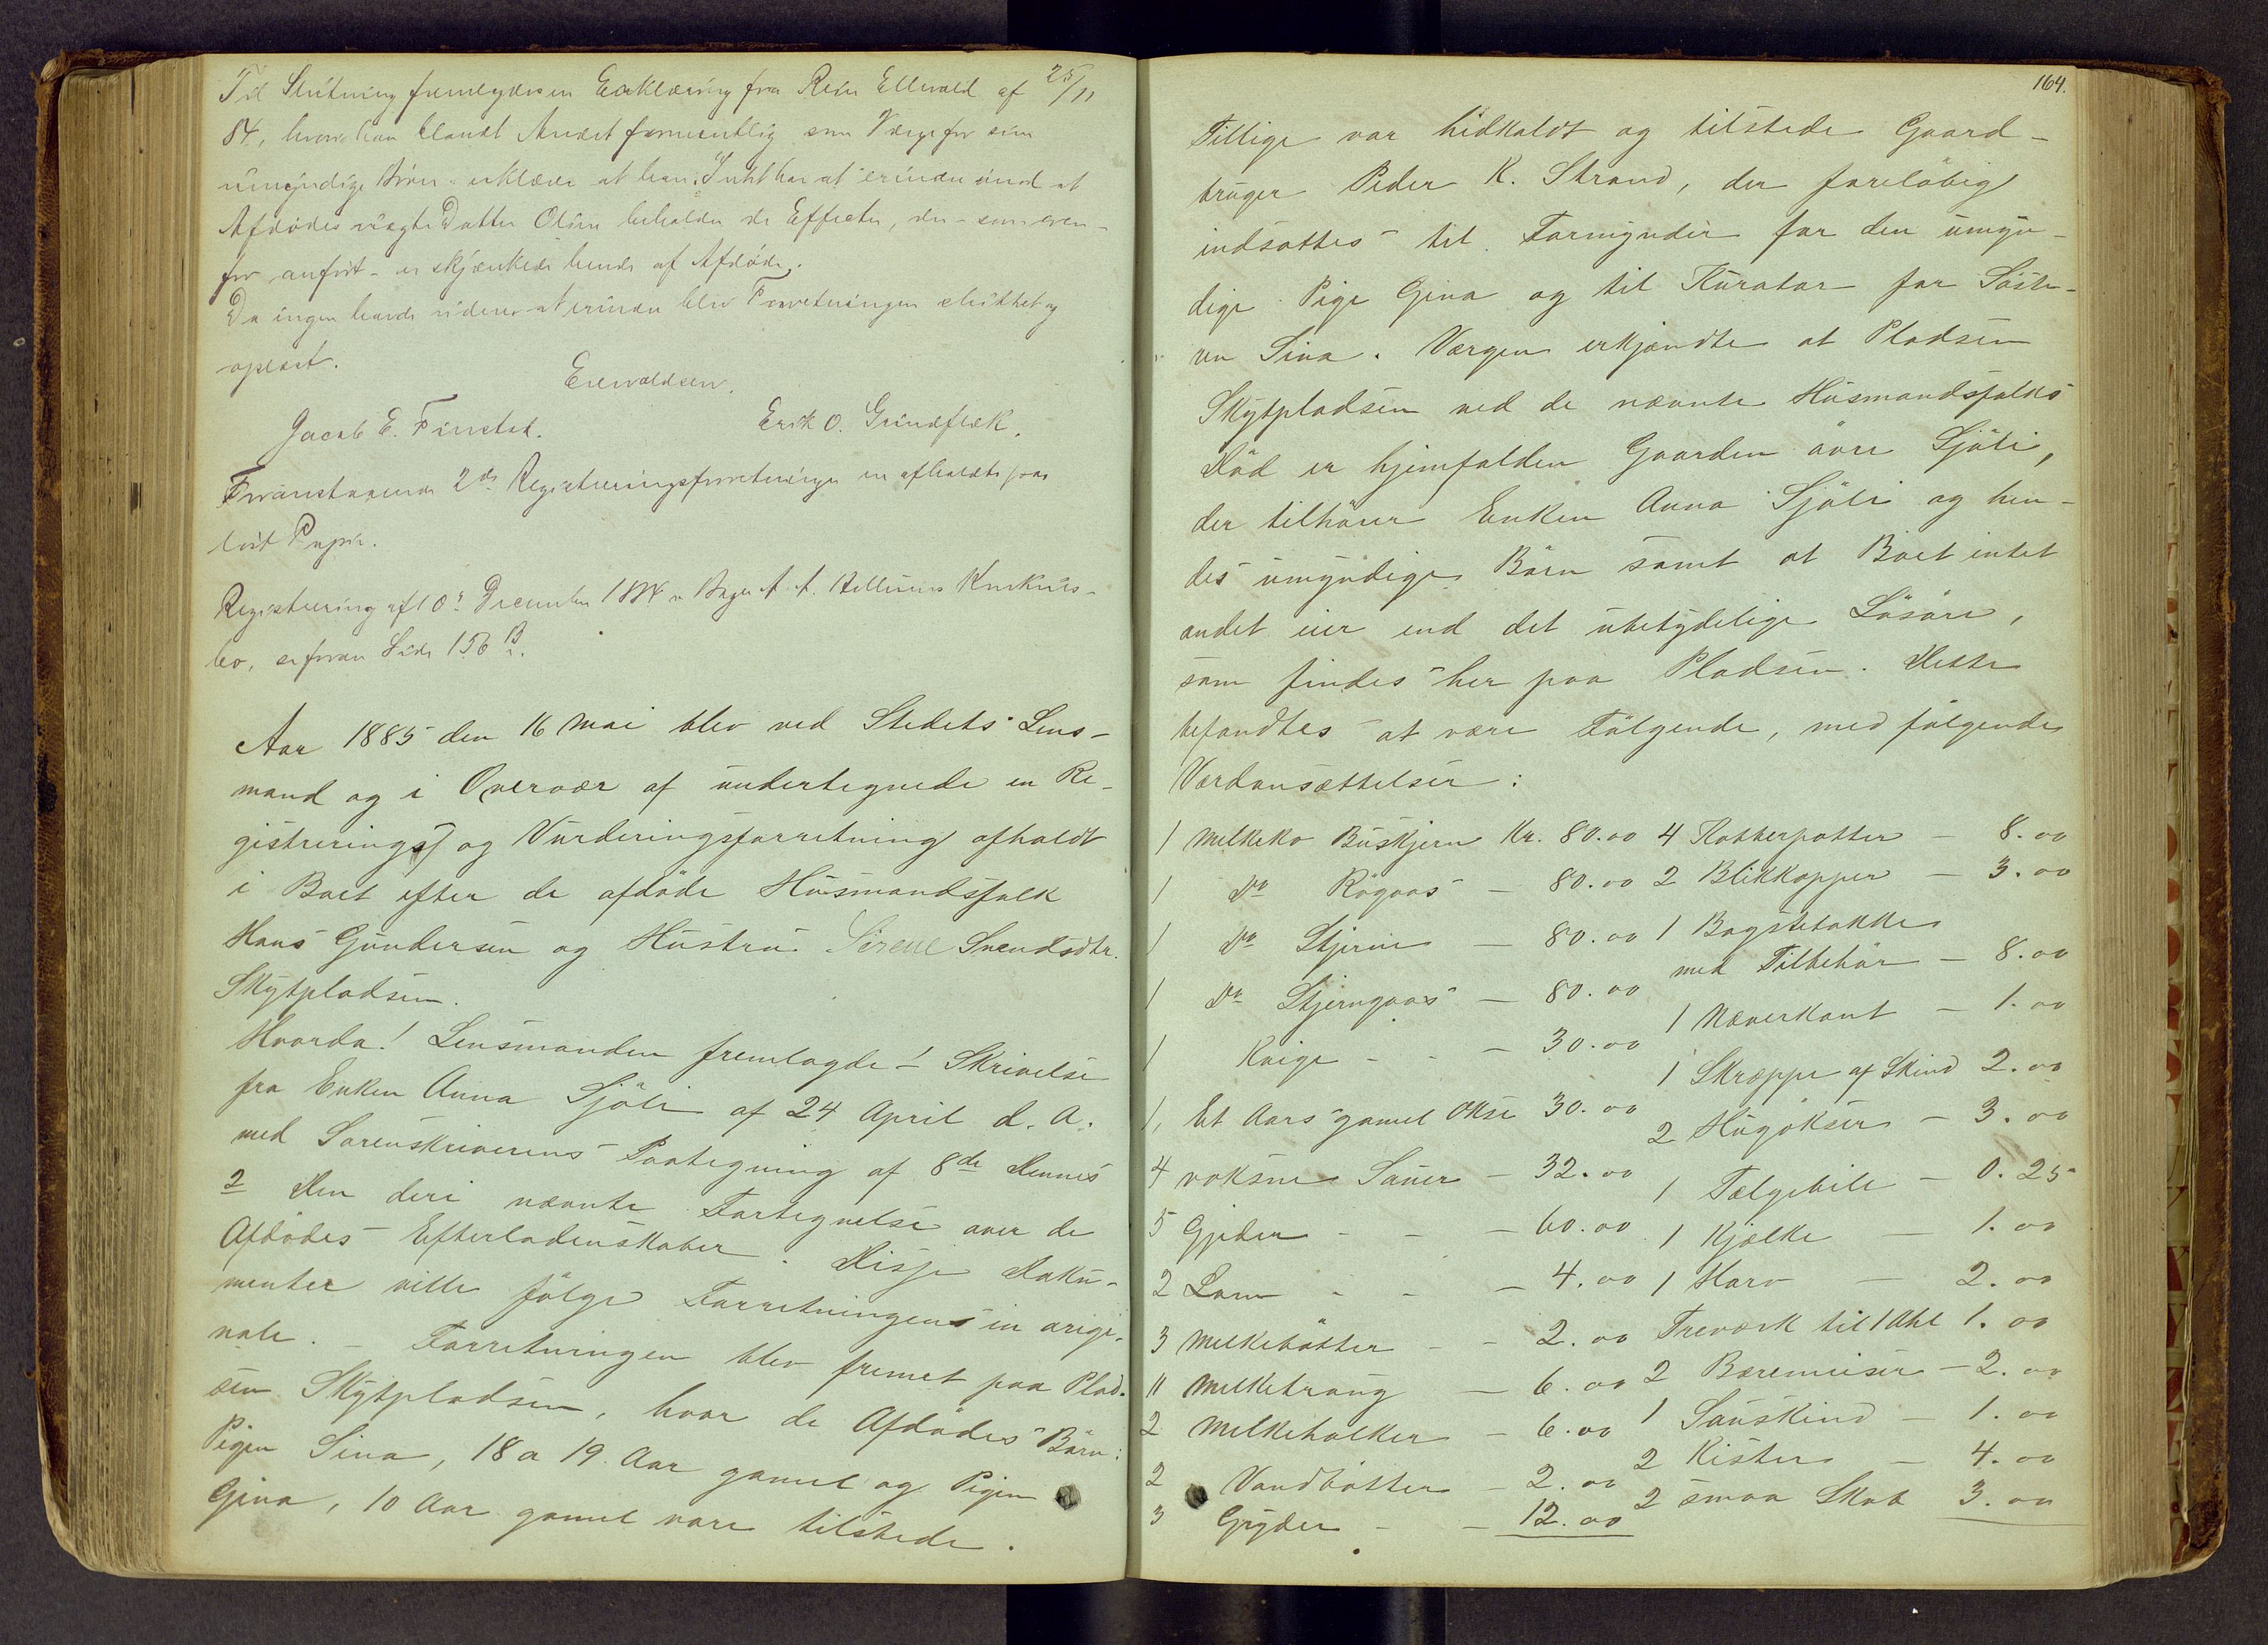 Til Slutning fremlagdes en Erklæring fra Reier Ellevold af 25/11
84, hvori han blandt Andet formentlig som Værge for sine
umyndige Børn erklærer at han Intet har at erindre imod at
Afdødes uægte Datter Oline beholder de Effecter, der - som oven-
for anført - er skjænkede hende af Afdøde.
Da ingen havde videre at erindre blev Forretningen sluttet og
oplæst.
Enevoldsen.
Jacob E. Finstad. Erik O. Grindflek.
Foranstaaende 2de Registreringsforretninger er afholdte paa
løst Papir.
Registrering af 10de December 1884 i Bager A. A. Konkurs-
bo, se foran Side 156 B.
Aar 1885 den 16 Mai blev ved Stedets Lens-
mand og i Overvær af undertegnede en Re-
gistrerings og Vurderingsforretning afholdt
i Boet efter de afdöde Husmandsfolk
Hans Gundersen og Hustru Serene Svendsdtr.
Skytpladsen.
Hvorda! Lensmanden fremlagde 1 Skrivelse
fra Enken Anna Sjöli af 24 April d. A.
med Sorenskriverens Paategning af 8de Dennes
2 Den deri nævnte Fortegnelse over de
Afdödes Efterladenskaber. Disse Doku-
menter ville fölge Forretningens in origi-
nale. - Forretningen blev fremet paa Plad-
sen Skytpladsen, hvor de Afdödes Börn:
Pigen Sina, 18 a 19 Aar gamel og Pigen
Gina, 10 Aar gamel vare tilstede.
164.
Tillige var hidkaldt og tilstede Gaard-
bruger Peder K. Strand, der forelöbig
indsattes til Formynder for den umyn-
dige Pige Gina og til Kurator for Söste-
ren Sina. Værgen erkjendte at Pladsen
Skytpladsen ved de nævnte Husmandsfolks
Död er hjemfalden Gaarden övre Sjöli,
der tilhörer Enken Anna Sjöli og hen-
des umyndige Börn samt at Boet intet
andet eier end det ubetydelige Lösöre,
som findes her paa Pladsen. Dette
befandtes at være Fölgende, med fölgende
Værdansættelser:
1 Melkeko Buskjern Kr. 80.00 4 Kokkerpotter - 8.00
1 Do Rögaas - 80.00 2 Blikkopper - 3.00
1 Do Stjerne - 80.00 1 Bagstetakke
med Tilbehör - 8.00
1 Do Stjerngaas - 80.00
1 Næverkont - 1.00
1 Kvige - - - 30.00
1 Skræppe af Skind 2.00
1, Et Aars gamel Okse 30.00
2 Hugökser - 3.00
4 voksne Sauer - 32.00
1 Tælgebile - 0.25
5 Gjeder - - - 60.00 1 Kjælke - 1.00
2 Lam - - - 4.00 1 Harv - 2.00
3 Melkebötter - - 2.00 Treværk til 1 Ahl 1.00
11 Melketraug - 6.00 2 Bæremeiser - 2.00
2 Melkeholker - 6.00 1 Sauskind - 1.00
2 Vandbötter - 2.00 2 Kister - 4.00
3 Gryder - - 12.00 2 smaa Skab 3.00